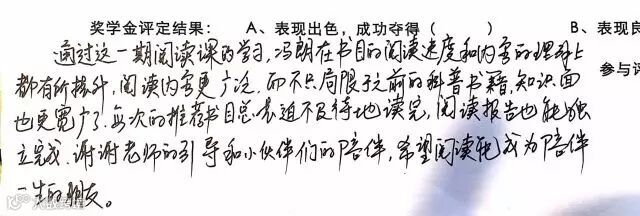 奖学金评定结果： A、表现出色，成功夺得（ ） B、表现良
通过这一期阅读课的学习，冯朗在书目的阅读速度和内容的理解上
都有所提升，阅读内容更广泛，而不只局限于之前的科普书籍，知识面
参与评
也更宽广了。每次的推荐书目总表迫不及待地读完，阅读报告也能独
立完成。谢谢老师的引导和小伙伴们的陪伴，希望阅读能成为陪伴
一生的朋友。